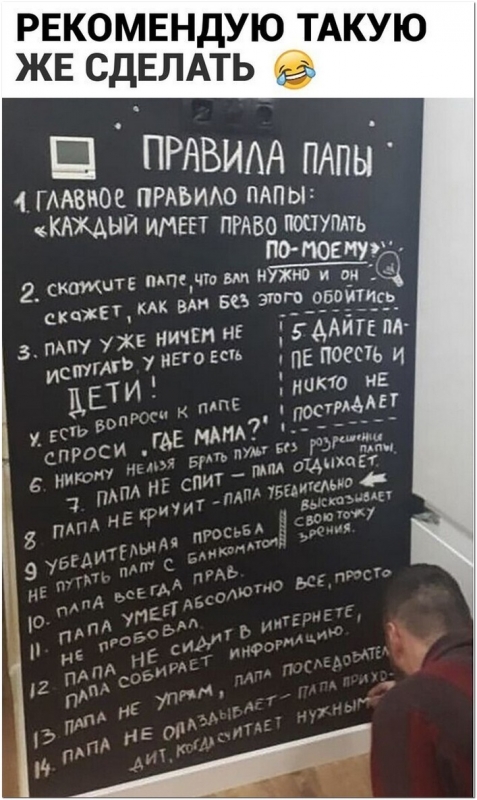 РЕКОМЕНДУЮ ТАКУЮ
ЖЕ СДЕЛАТЬ
ПРАВИЛА ПАПЫ
1. ГЛАВНОЕ ПРАВИЛО ПАПЫ:
«КАЖДЫЙ ИМЕЕТ ПРАВО ПОСТУПАТЬ
ПО-МОЕМУ»
2. СКАЖИТЕ ПАПЕ, ЧТО ВАМ НУЖНО И ОН
СКАЖЕТ, КАК ВАМ БЕЗ ЭТОГО ОБОЙТИСЬ
3. ПАПУ УЖЕ НИЧЕМ НЕ
ИСПУГАТЬ У НЕГО ЕСТЬ
ДЕТИ!
Ч. ЕСТЬ ВОПРОСЫ К ПАПЕ
СПРОСИ "ГДЕ МАМА?"
5. ДАЙТЕ ПА-
ПЕ ПОЕСТЬ И
НИКТО НЕ
ПОСТРАДАЕТ
6. НИКОМУ НЕЛЬЗЯ БРАТЬ ПУЛЬТ БЕЗ РАЗРЕШЕНИЯ
ПАПЫ.
7. ПАПА НЕ СПИТ – ПАПА ОТДЫХАЕТ.
8 ПАПА НЕ КРИЧИТ - ПАПА УБЕДИТЕЛЬНО
ВЫСКАЗЫВАЕТ
СВОЮ ТОЧКУ
ЗРЕНИЯ.
9 УБЕДИТЕЛЬНАЯ ПРОСЬБА
НЕ ПУТАТЬ ПАПУ С БАНКОМАТОМ
10. ПАПА ВСЕГДА ПРАВ.
11. ПАПА УМЕЕТ АБСОЛЮТНО ВСЕ, ПРОСТО
НЕ ПРОБОВАЛ.
12. ПАПА НЕ СИДИТ В ИНТЕРНЕТЕ,
ПАПА СОБИРАЕТ ИНФОРМАЦИЮ.
13. ПАПА НЕ УПРЯМ, ПАПА ПОСЛЕДОВАТЕЛ
14. ПАПА НЕ ОПАЗДЫВАЕТ – ПАПА ПРИХО-
ДИТ, КОГДА СЧИТАЕТ НУЖНЫМ